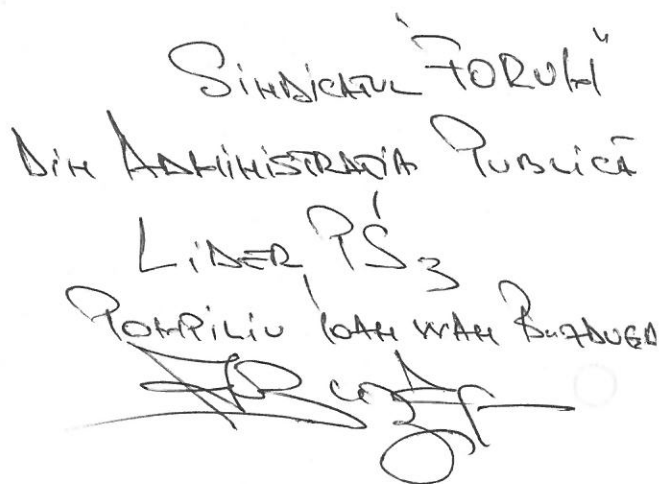 SINDICATUL "FORUM"
DIN ADMINISTRAȚIA PUBLICĂ
LIDER PS3
POMPILIU IOAN WAN BUZDUGA